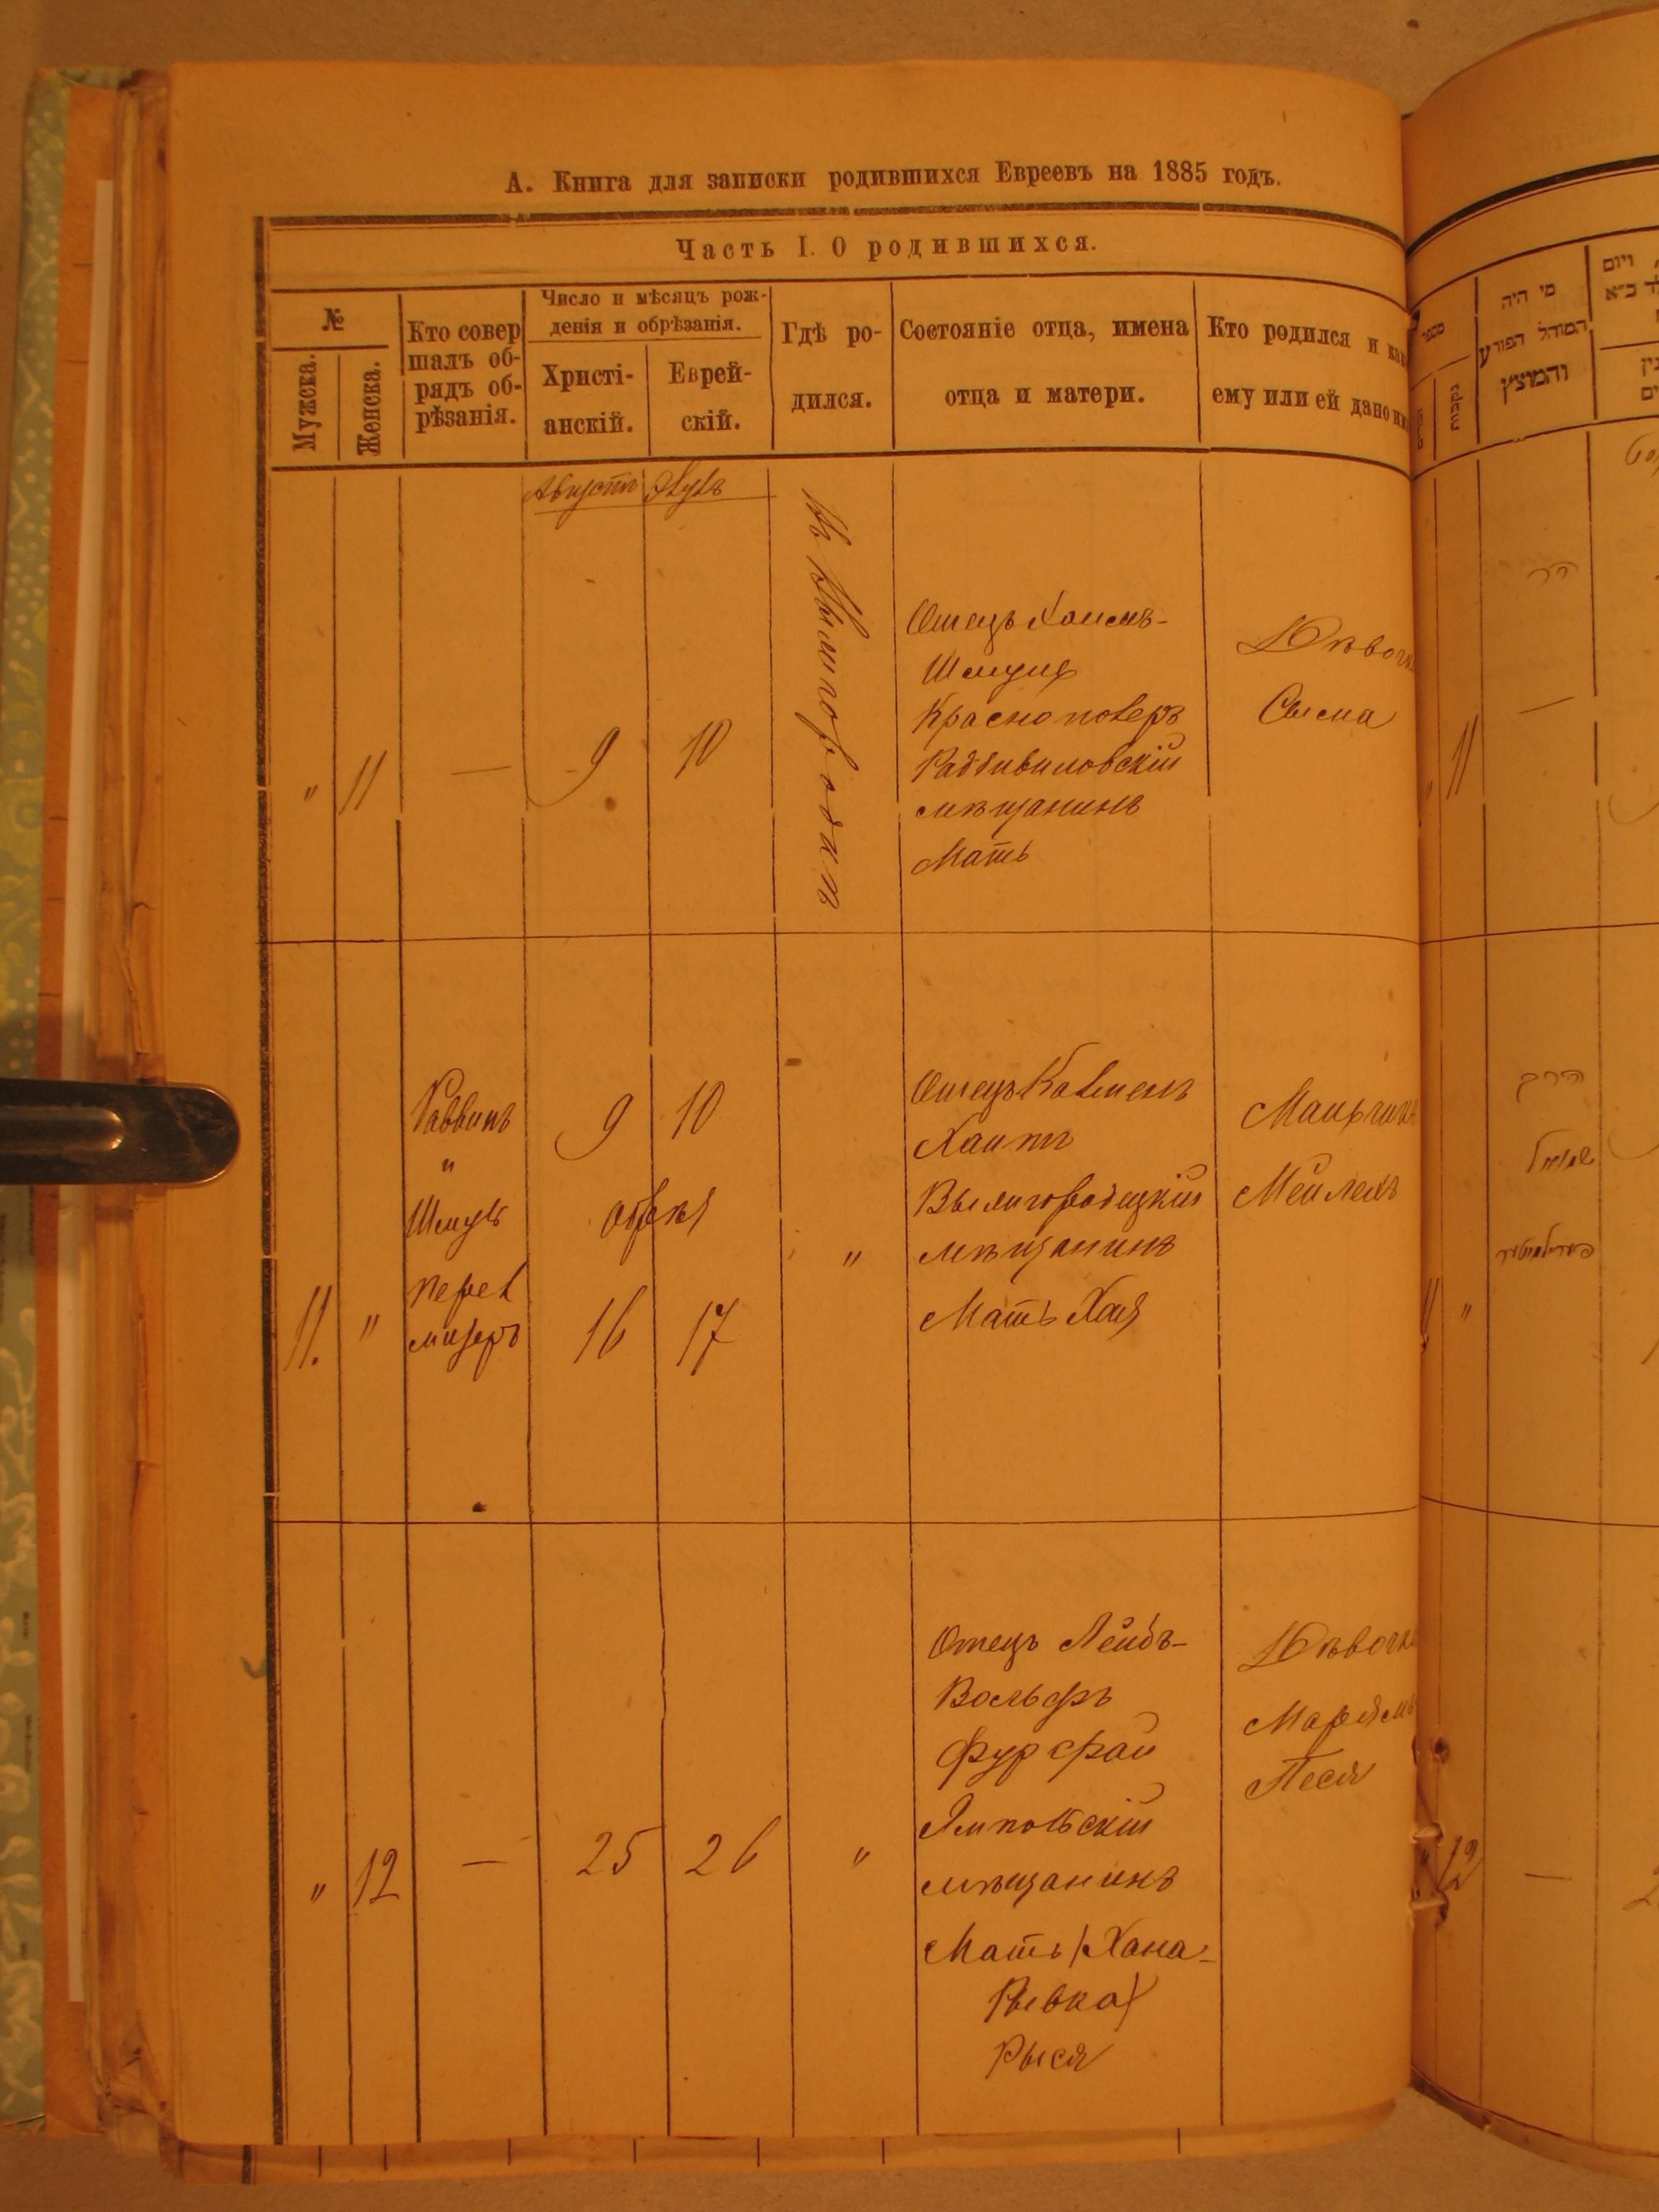 А. Книга для записки родившихся Евреевъ на 1885 годъ.
Часть I. О родившихся.
№
Мужска.
Женска.
Кто совер
шалъ об-
рядъ об-
рѣзанія.
Число и мѣсяцъ рож-
денія и обрѣзанія.
Христі-
анскій.
Еврей-
скій.
Гдѣ ро-
дился.
Состояніе отца, имена
отца и матери.
Кто родился и
ему или ей дано
Августъ
" 11 — 9 10
Отецъ Хаимъ-
Шмуль
Краснополеръ
Радзивиловскій
мѣщанинъ
Мать
Сисма
11. "
Раввинъ
"
Шмуль
Перел
мутеръ
9 10
обрѣз
16 17
"
Отецъ Калменъ
Хаитъ
Вышгородецкій
мѣщанинъ
Мать Хая
Мальчикъ
Мейлехъ
" 12 — 25 26 "
Отецъ Лейбъ-
Вольфъ
Фурфай
Ямпольскій
мѣщанинъ
Мать /Хана-
Ривка/
Рыся
Дѣвочка
Марьямъ
Песя
מי היה
המוהל הפורע
והמוצץ
ויום
נקבות
" 11 —
"
" 12 —